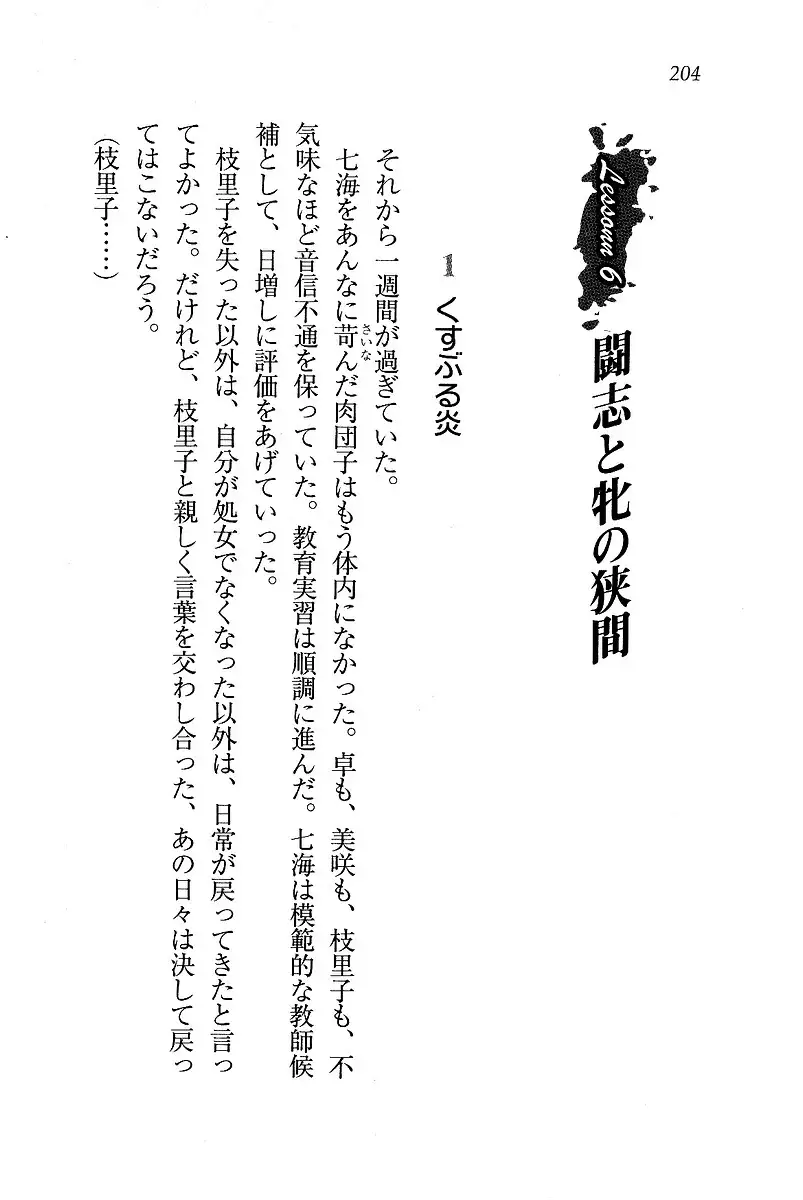 204
Lessonn 6
闘志と牝の狭間
1 くすぶる炎
それから一週間が過ぎていた。
七海をあんなに苛んだ肉団子はもう体内になかった。卓も、美咲も、枝里子も、不
さいな
気味なほど音信不通を保っていた。教育実習は順調に進んだ。七海は模範的な教師候
補として、日増しに評価をあげていった。
枝里子を失った以外は、自分が処女でなくなった以外は、日常が戻ってきたと言っ
てよかった。だけれど、枝里子と親しく言葉を交わし合った、あの日々は決して戻っ
てはこないだろう。
（枝里子……）